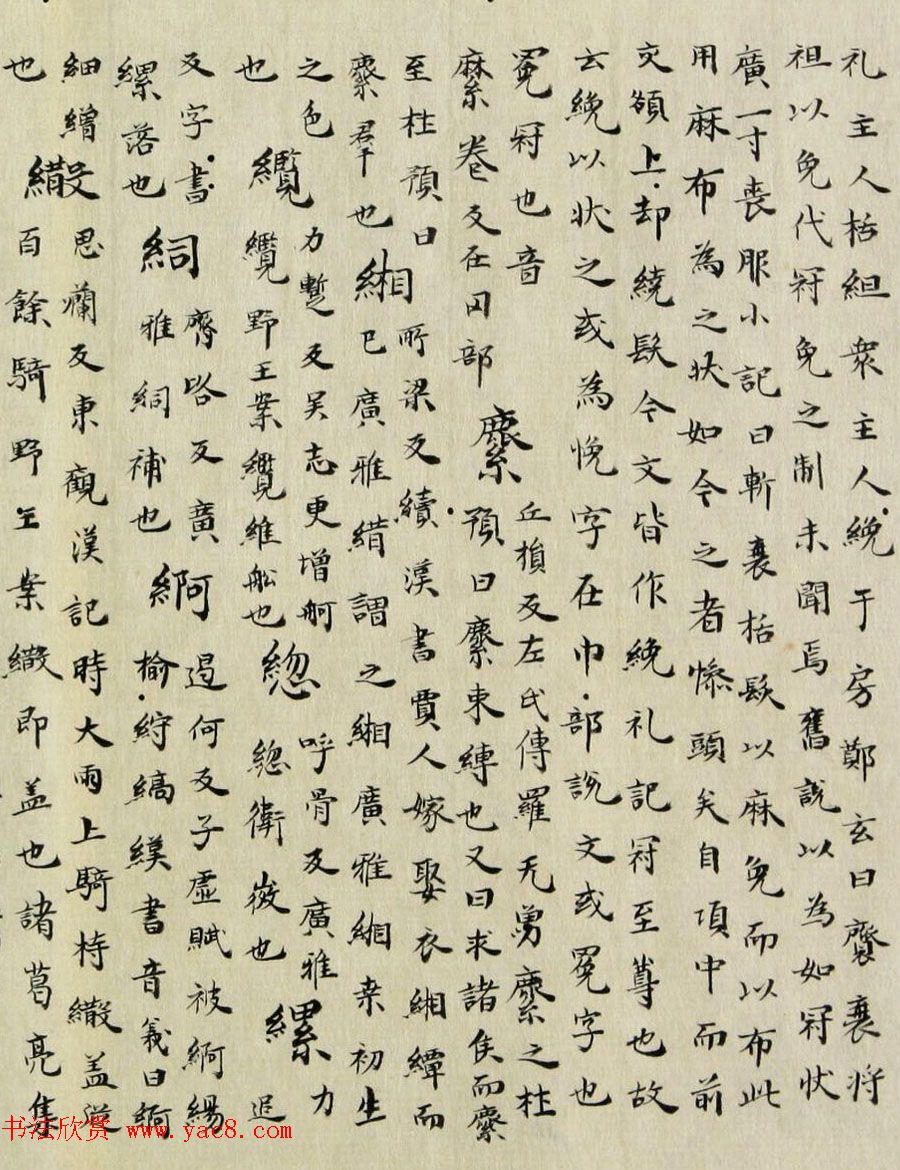 礼主人括組衆主人絻于房鄭玄曰齊衰将
袒以免代冠免之制未聞焉舊説以為如冠状
廣一寸喪服小記曰斬衰括髮以麻免而以布此
用麻布為之状如今之者幧頭矣自項中而前
交額上却繞髮今文皆作絻礼記冠至尊也故
云絻以状之或為帨字在巾部説文或冕字也
冕冠也音丘損反左氏傳羅无勇麇之杜
卷反在冃部預曰束縛也又曰求諸侯而
至杜預曰所梁反續漢書賈人嫁娶衣緗縹而
群也緗巳廣雅謂之緗廣雅緗桒初生
之色力蹔反吴志更增舸呼骨反廣雅力
也纜纜野王案纜維舩也緫緫微也縲追
反字書齊咎反廣遏何反子虚賦被緆
縲落也絧雅絧補也揄紵縞漢書音義曰
細繒思爛反東觀漢記時大雨上騎持繖盖道
也繖百餘騎野王案繖即盖也諸葛亮集
书法欣赏 www.yac8.com